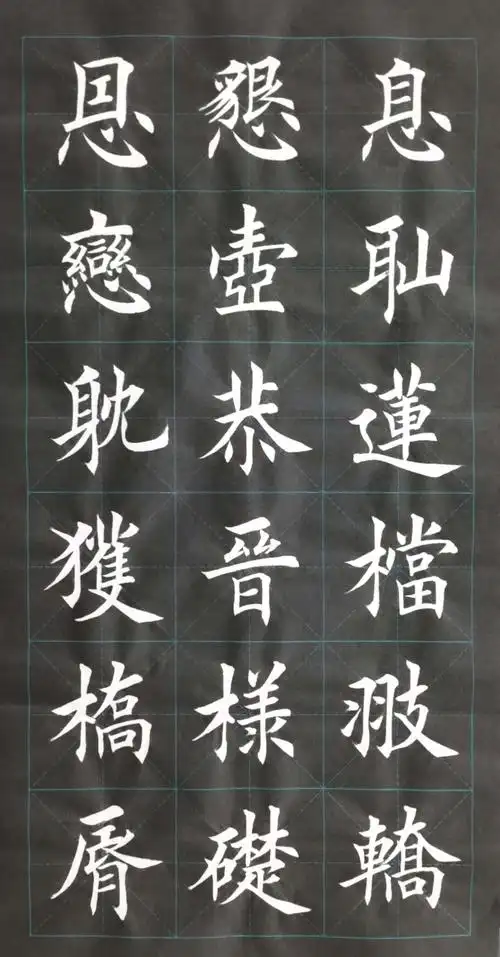 息耻蓮檔翄轎
懇壷恭晉様礎
恩戀躭獲槁脣